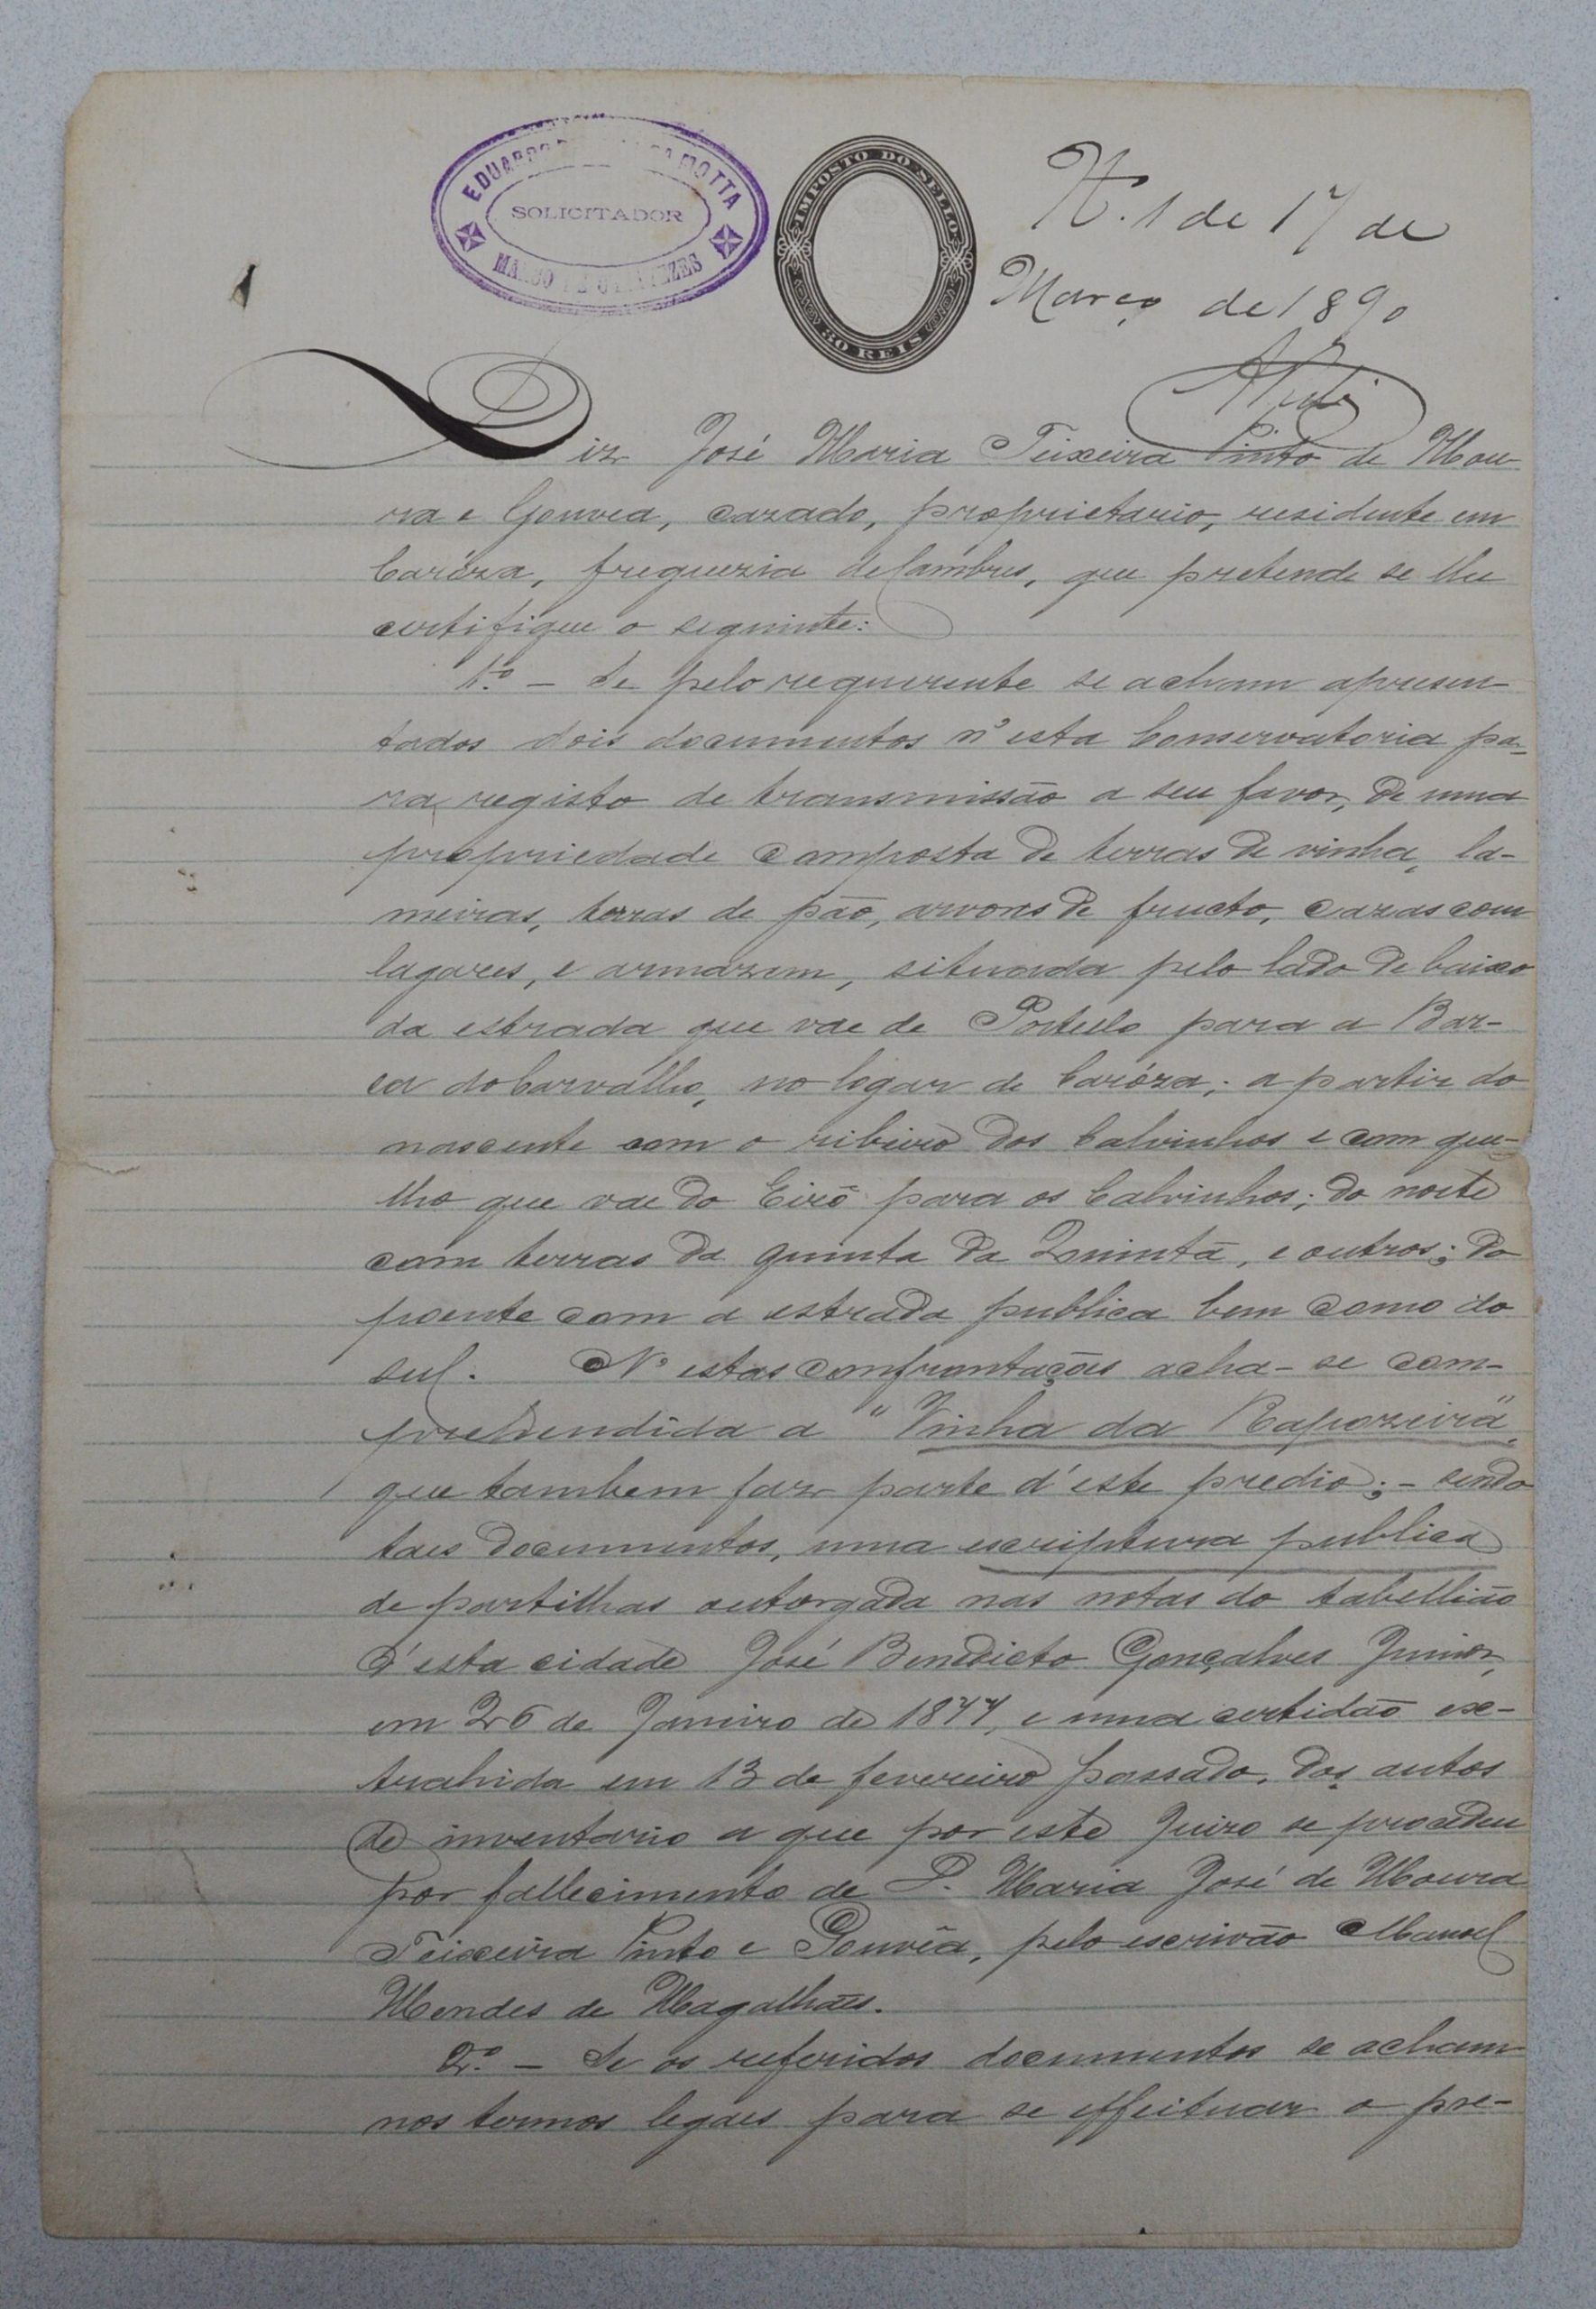 EDUARDO MOTTA
SOLICITADOR
MARCO DE CANAVEZES
IMPOSTO DO SELLO
80 REIS
N. 1 de 17 de
Março de 1890
Diz José Maria Teixeira Pinto de Mou-
ra e Gouvea, cazado, proprietario, residente em
Caróza, freguezia de Cambres, que pretende se lhe
certifique o seguinte:
1.º - Se pelo requerente se acham apresen-
tados dois documentos n'esta Conservatoria pa-
ra registo de transmissão a seu favor, de uma
propriedade composta de terras de vinha, la-
meiras, terras de pão, arvores de fructo, cazas com
lagares, e armazem, situada pelo lado de baixo
da estrada que vae de Portello para a Bar-
ca do Carvalho, no logar de Caróza; a partir do
nascente com o ribeiro dos Calvinhos e com que-
lho que vae do Eirô para os Calvinhos; do norte
com terras da quinta da Quintã, e outros; do
poente com a estrada publica bem como do
sul. N'estas confrontações acha-se com-
prehendida a "Vinha da Rapozeira",
que tambem faz parte d'este predio; - sendo
taes documentos, uma escriptura publica
de partilhas outorgada nas notas do tabellião
d'esta cidade José Bendicto Gonçalves Junior,
em 26 de Janeiro de 1877, e uma certidão ex-
trahida em 13 de fevereiro passado, dos autos
de inventario a que por este Juizo se procedeu
por fallecimento de D. Maria José de Moura
Teixeira Pinto e Gouvêa, pelo escrivão Manoel
Mendes de Magalhães.
2.º - Se os referidos documentos se acham
nos termos legaes para se effeituar o pre-